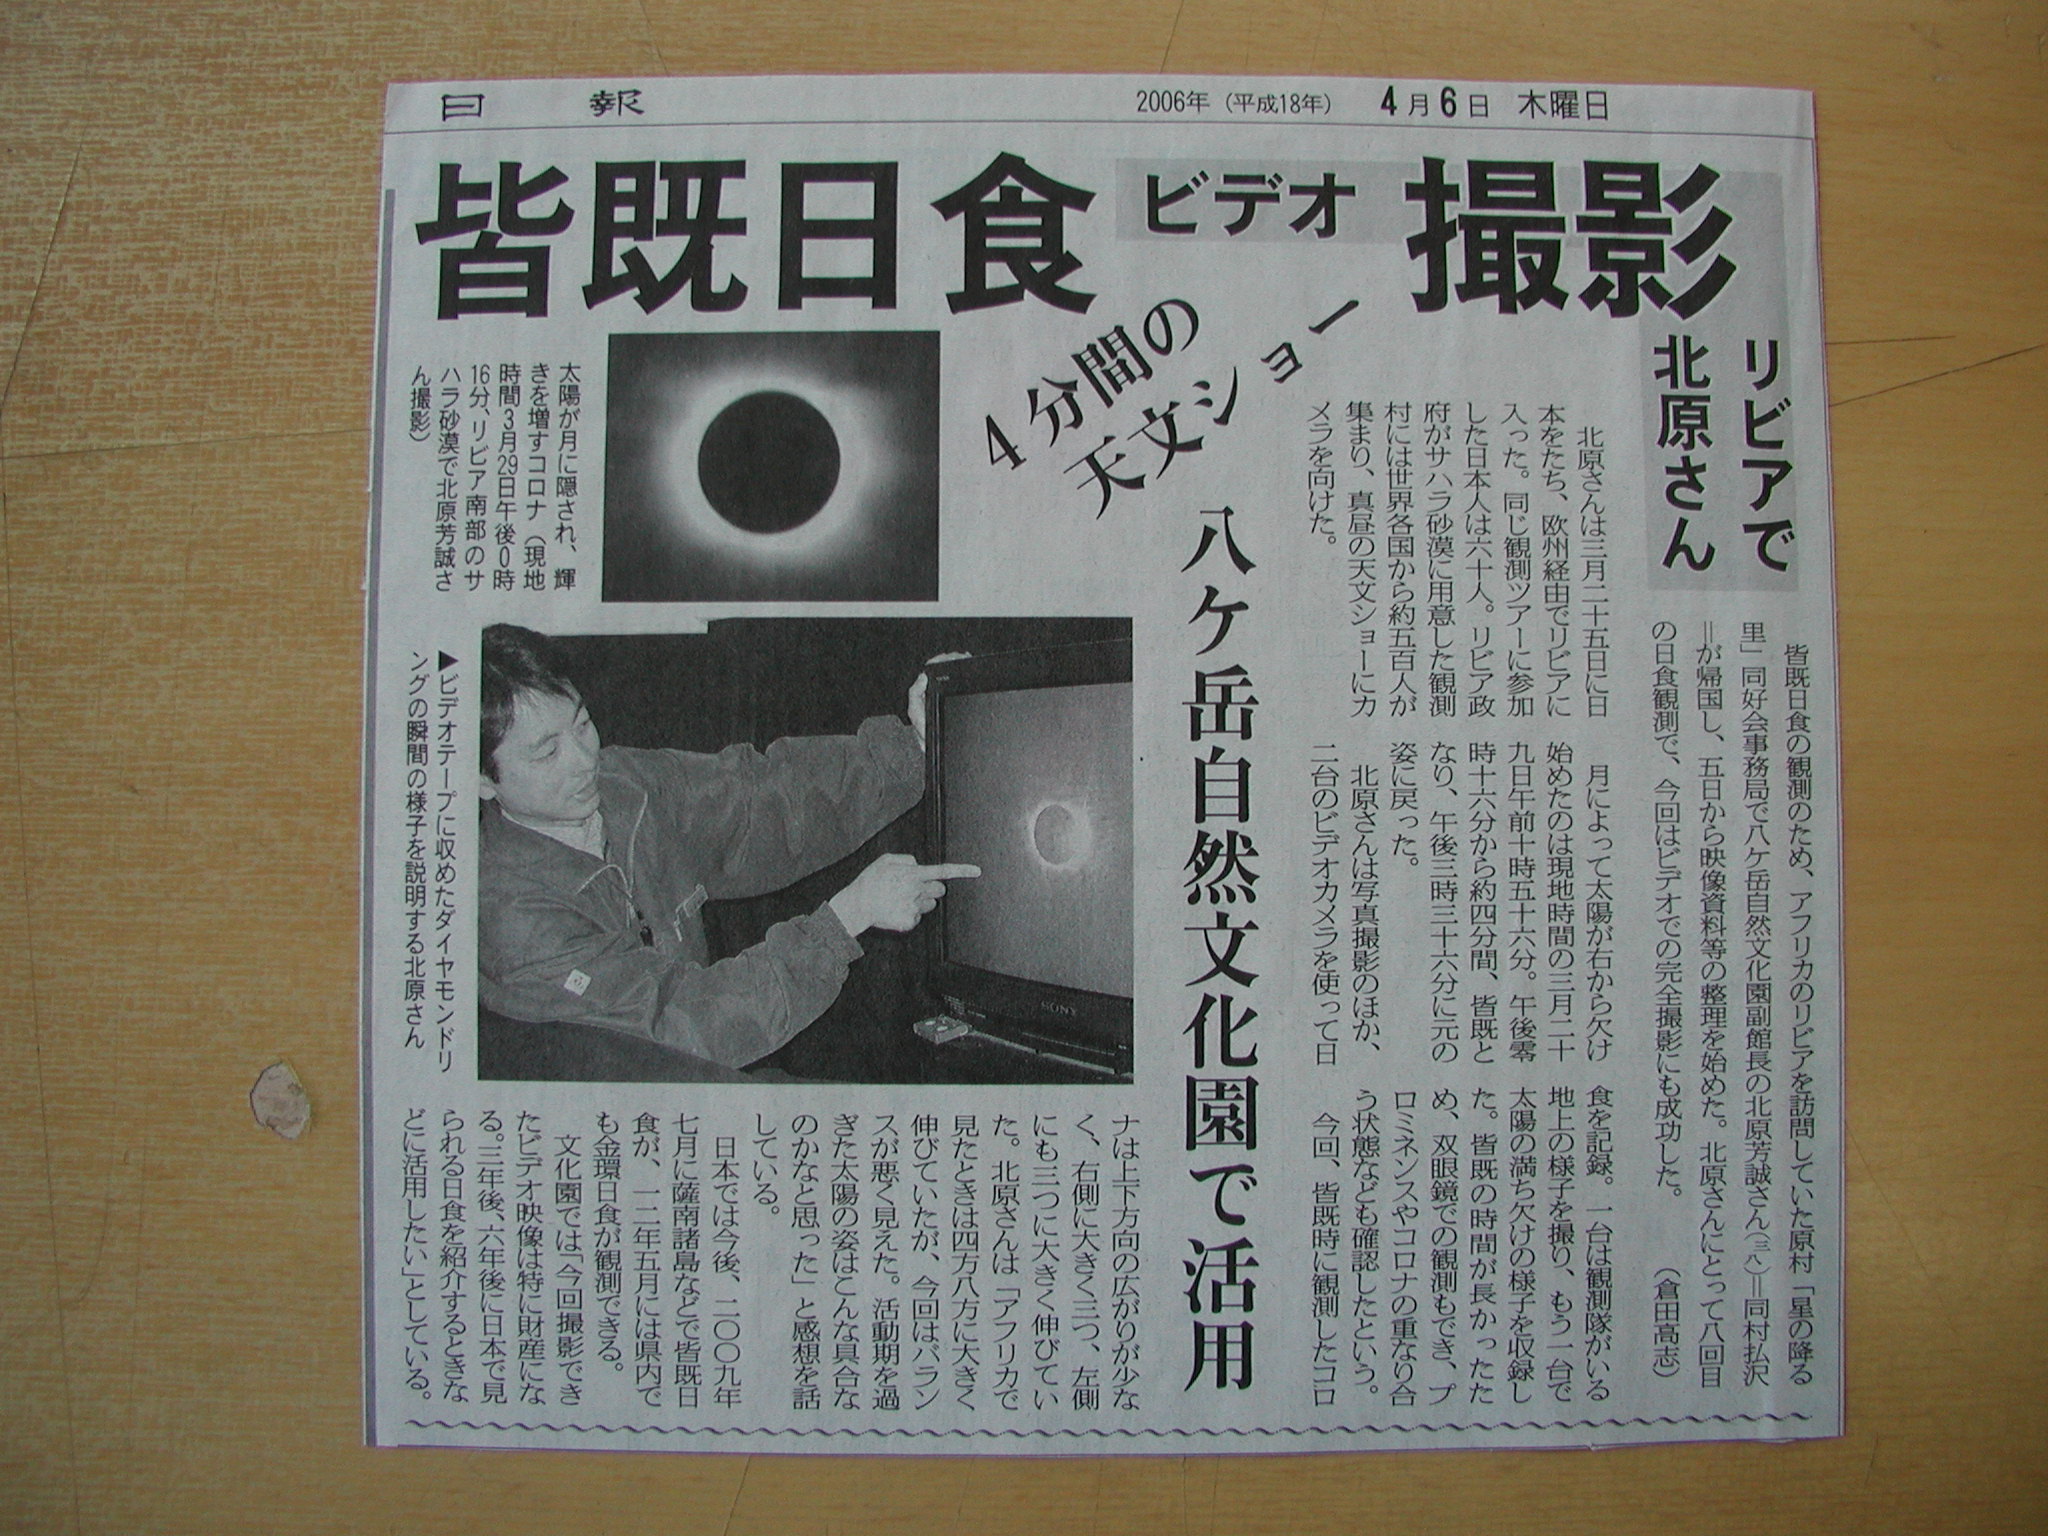 日報
2006年（平成18年） 4月6日 木曜日
皆既日食ビデオ撮影
リビアで
北原さん
4分間の
天文ショー
八ケ岳自然文化園で活用
皆既日食の観測のため、アフリカのリビアを訪問していた原村「星の降る
里」同好会事務局で八ケ岳自然文化園副館長の北原芳誠さん（三八）＝同村払沢
＝が帰国し、五日から映像資料等の整理を始めた。北原さんにとって八回目
の日食観測で、今回はビデオでの完全撮影にも成功した。（倉田高志）
北原さんは三月二十五日に日
本をたち、欧州経由でリビアに
入った。同じ観測ツアーに参加
した日本人は六十人。リビア政
府がサハラ砂漠に用意した観測
村には世界各国から約五百人が
集まり、真昼の天文ショーにカ
メラを向けた。
月によって太陽が右から欠け
始めたのは現地時間の三月二十
九日午前十時五十六分。午後零
時十六分から約四分間、皆既と
なり、午後三時三十六分に元の
姿に戻った。
北原さんは写真撮影のほか、
二台のビデオカメラを使って日
食を記録。一台は観測隊がいる
地上の様子を撮り、もう一台で
太陽の満ち欠けの様子を収録し
た。皆既の時間が長かったた
め、双眼鏡での観測もでき、プ
ロミネンスやコロナの重なり合
う状態なども確認したという。
今回、皆既時に観測したコロ
ナは上下方向の広がりが少な
く、右側に大きく三つ、左側
にも三つに大きく伸びてい
た。北原さんは「アフリカで
見たときは四方八方に大きく
伸びていたが、今回はバラン
スが悪く見えた。活動期を過
ぎた太陽の姿はこんな具合な
のかなと思った」と感想を話
している。
日本では今後、二〇〇九年
七月に薩南諸島などで皆既日
食が、一二年五月には県内で
も金環日食が観測できる。
文化園では「今回撮影でき
たビデオ映像は特に財産にな
る。三年後、六年後に日本で見
られる日食を紹介するときな
どに活用したい」としている。
太陽が月に隠され、輝
きを増すコロナ（現地
時間3月29日午後0時
16分、リビア南部のサ
ハラ砂漠で北原芳誠さ
ん撮影）
▶ビデオテープに収めたダイヤモンドリ
ングの瞬間の様子を説明する北原さん
SONY